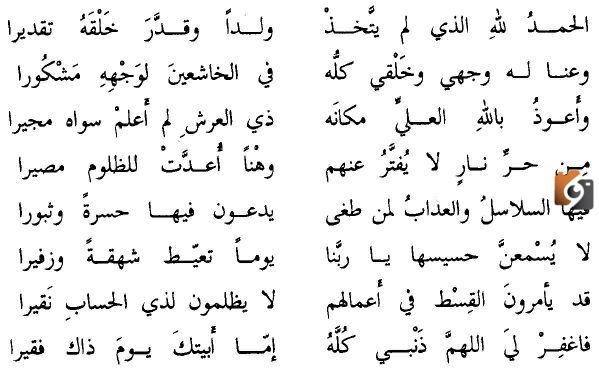 الحمـــدُ للهِ الذي لم يتَّخـــذْ ولـــداً وقـــدَّرَ خَلْقَهُ تقديرا
وعنـا لــه وجهي وخَلْقي كلُّه في الخاشعينَ لوَجْهِهِ مَشْكُورا
وأعــوذُ باللهِ العــليِّ مكانَه ذي العرشِ لم أَعلمْ سواه مجيرا
مِــن حــرِّ نــارٍ لا يُفتَّرُ عنهم وهْناً أُعـدَّتْ للظلوم مصيرا
فيها السلاسلُ والعذابُ لمن طغى يدعــون فيهــا حسرةً وثبورا
لا يُسْمعنَّ حسيسها يــا ربَّنا يومــاً تغيّــظ شهقــةً وزفيرا
قد يأمرونَ القِسْط في أَعمالهم لا يظلمون لذي الحسابِ نَقيرا
فاغفِــرْ ليَ اللهمَّ ذَنْبــي كُلَّهُ إمّــا أَبيتكَ يــومَ ذاك فقيرا